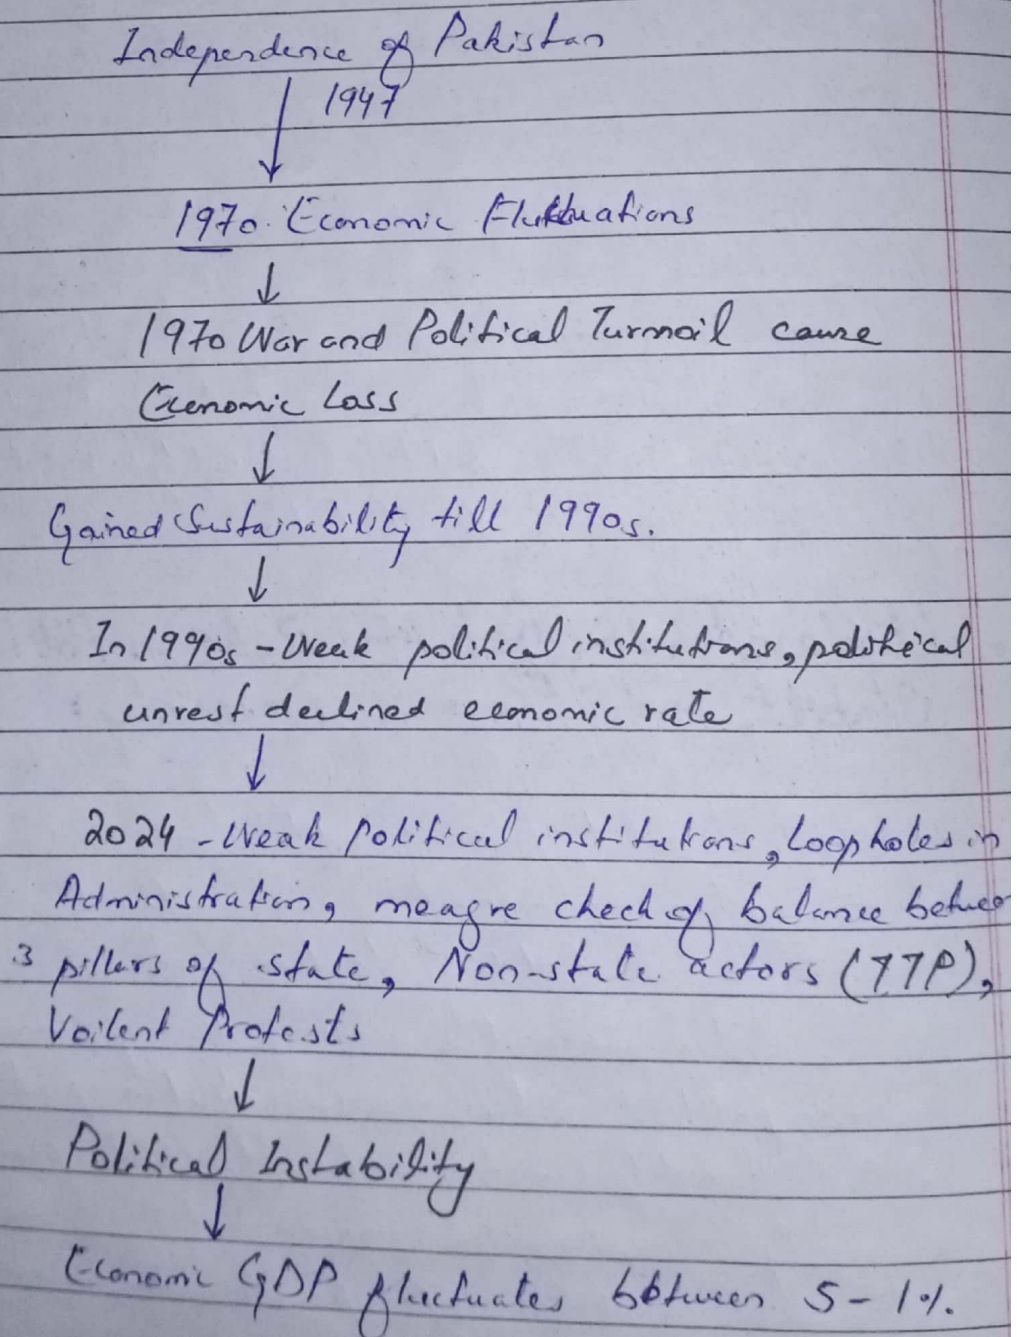 Independence of Pakistan
1947
1970. Economic Fluktuations
1970 War and Political Turmoil cause
Economic Loss
Gained Sustainability till 1990s.
In 1990s - Weak political institutions, political
unrest declined economic rate
2024 - Weak Political institutions, Loopholes in
Administration, meagre check of balance between
3 pillers of state, Non-state actors (TTP),
Voilent Protests
Political Instability
Economic GDP fluctuates between 5-1%.